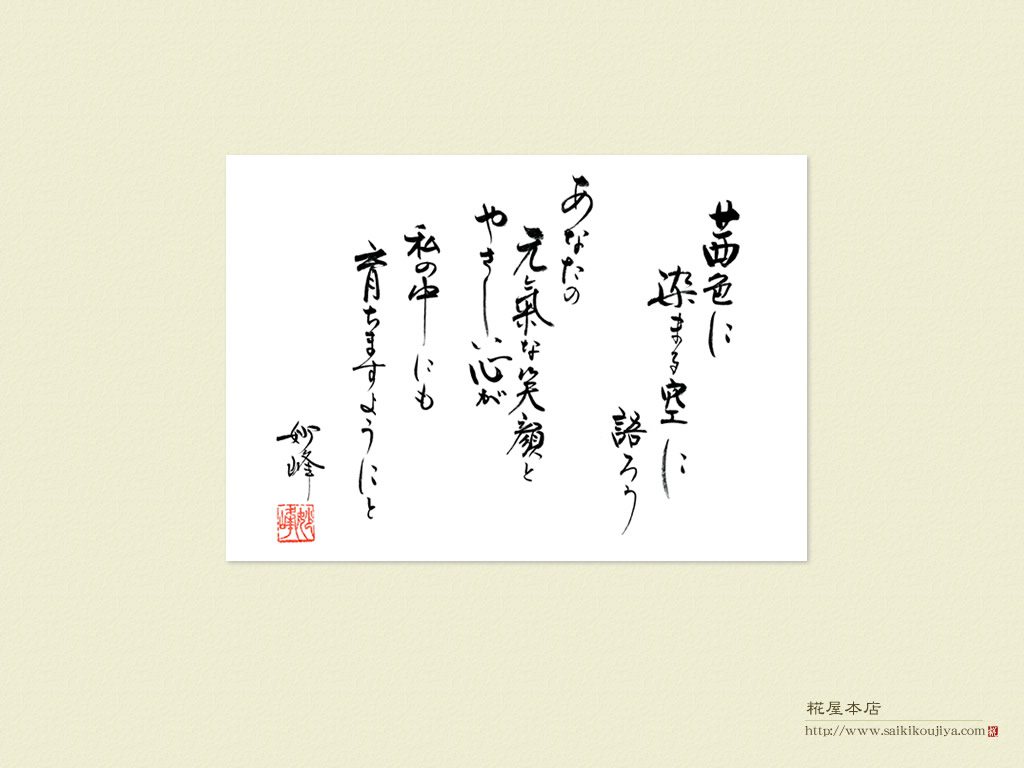 茜色に
染まる空に
語ろう
あなたの
元氣な笑顔と
やさしい心が
私の中にも
育ちますようにと
妙峰
妙峰
糀屋本店
http://www.saikikoujiya.com
糀